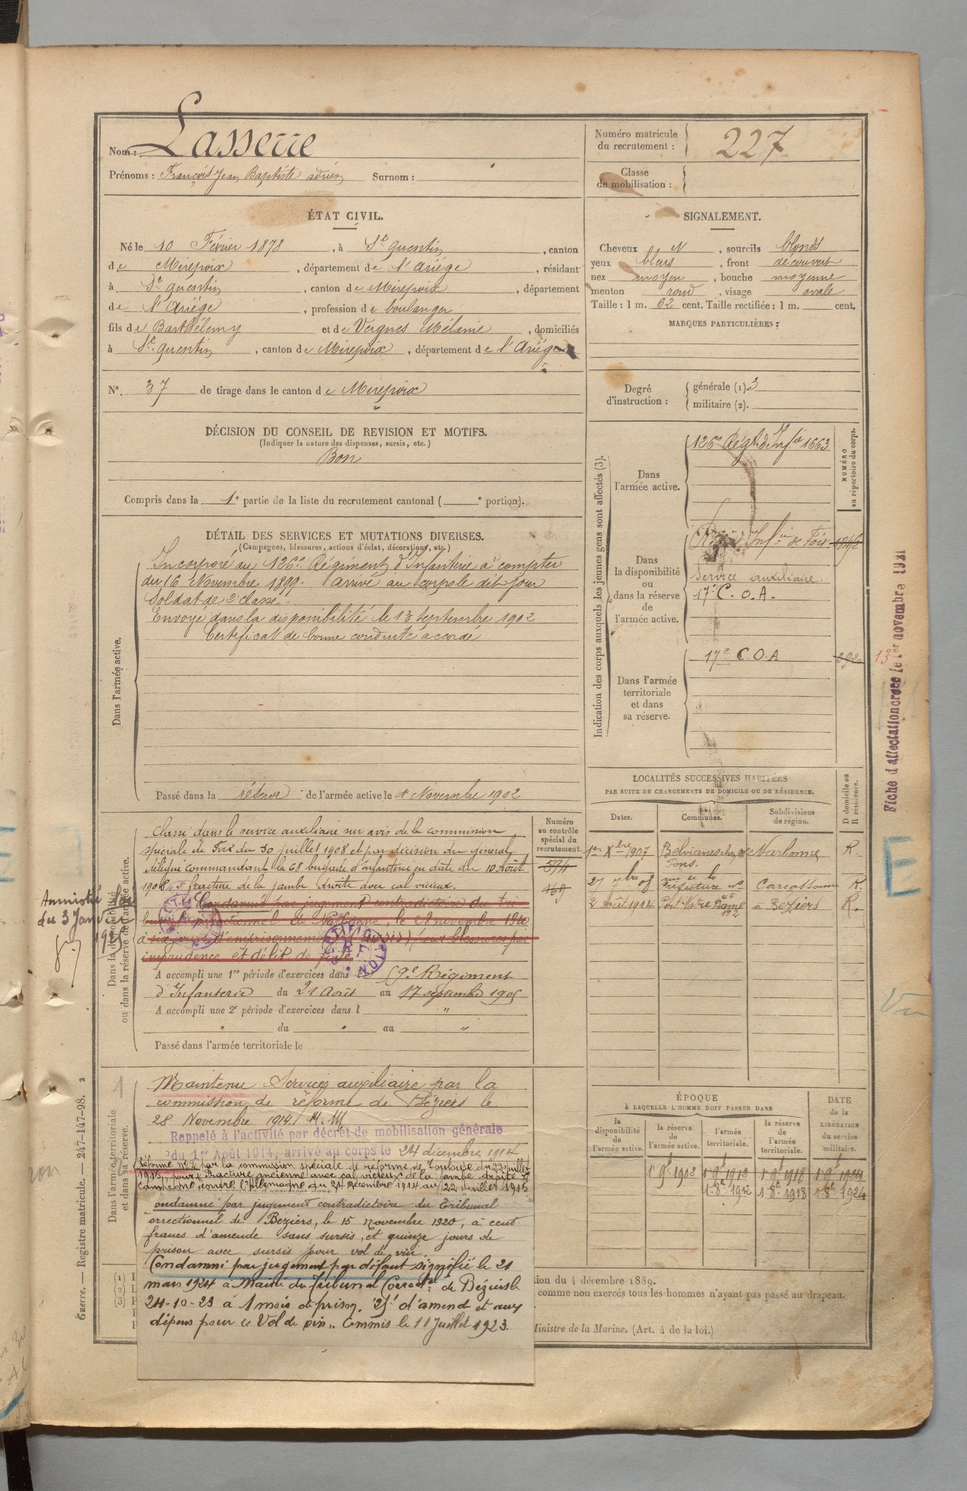 Nom : Lasserre
Prénoms : François Jean Baptiste adrien Surnom :
Numéro matricule du recrutement : 227
Classe de mobilisation :
ÉTAT CIVIL.
Né le 10 Février 1878, à St Quentin, canton
de Mirepoix, département de l'Ariège, résidant
à St Quentin, canton de Mirepoix, département
de l'Ariége, profession de boulanger
fils de Barthélemy et de Vergnes Mélanie, domiciliés
à St Quentin, canton de Mirepoix, département de l'Ariége
N°. 37 de tirage dans le canton de Mirepoix
SIGNALEMENT.
Cheveux bl d, sourcils blonds
yeux bleus, front découvert
nez moyen, bouche moyenne
menton rond, visage ovale
Taille : 1 m. 62 cent. Taille rectifiée : 1 m. cent.
MARQUES PARTICULIÈRES :
Degré d'instruction : générale (1) 3
militaire (2).
DÉCISION DU CONSEIL DE REVISION ET MOTIFS.
(Indiquer la nature des dispenses, sursis, etc.)
Bon
Compris dans la 1e partie de la liste du recrutement cantonal ( e portion).
DÉTAIL DES SERVICES ET MUTATIONS DIVERSES.
(Campagnes, blessures, actions d'éclat, décorations, etc.)
Dans l'armée active.
Incorporé au 126e Régiment d'Infanterie à compter
du 16 Novembre 1899. Arrivé au corps le dit jour
Soldat de 2e classe.
Envoyé dans la disponibilité le 13 septembre 1902
Certificat de bonne conduite accordé
Passé dans la réserve de l'armée active le 1 Novembre 1902
Indication des corps auxquels les jeunes gens sont affectés (3).
NUMÉRO au répertoire du corps.
Dans l'armée active.
126e Régt d'Infie 1663
Dans la disponibilité ou dans la réserve de l'armée active.
de Foix
Service auxiliaire.
17e C.O.A.
Dans l'armée territoriale et dans sa réserve.
17e C.O.A
Fiche d'affectation créée le 1er novembre 1921
LOCALITÉS SUCCESSIVES HABITÉES
PAR SUITE DE CHANGEMENTS DE DOMICILE OU DE RÉSIDENCE.
Dates. Communes. Subdivisions de région. D domicile ou R résidence.
1er Xbre 1907 Narbonne R
27 7bre 09 rue de la Préfecture n° 2 Carcassonne R.
2 août 1912 Béziers R.
Dans la disponibilité ou dans la réserve de l'armée active.
Numéro au contrôle spécial du recrutement.
594
Classé dans le service auxiliaire sur avis de la commission
spéciale de Foix du 30 juillet 1908 et par décision du général
délégué commandant la 68e brigade d'infanterie en date du 10 Août
1908 : fracture de la jambe droite avec cal vicieux.
Condamné par jugement contradictoire du tri
bunal correctionnel de Narbonne le 2 novembre 1910
à six jours d'emprisonnement (sursis) pour blessures par
imprudence et délit de fuite
Amnistié Loi
du 3 Janvier
1925
A accompli une 1re période d'exercices dans 59e Régiment
d'Infanterie du 21 Août au 17 septembre 1905
A accompli une 2e période d'exercices dans l "
" du " au "
Passé dans l'armée territoriale le
Dans l'armée territoriale et dans sa réserve.
Maintenu Service auxiliaire par la
commission de réforme de Béziers le
28 Novembre 1914
Rappelé à l'activité par décret de mobilisation générale
du 1er Août 1914, arrivé au corps le 24 décembre 1914
Réformé n° 2 par la commission spéciale de réforme de Toulouse du 22 juillet
1915, pour fracture ancienne avec cal vicieux de la jambe droite
Campagne contre l'Allemagne du 24 décembre 1914 au 22 juillet 1915
ondamné par jugement contradictoire du Tribunal
orrectionnel de Béziers, le 15 novembre 1920, à cent
francs d'amende sans sursis, et quinze jours de
prison avec sursis pour vol de vin.
Condamné par jugement par défaut signifié le 21
mars 1924 à Mairie du Tribunal Correctel de Béziers le
24-10-23 à 1 mois de prison, 25f d'amende et aux
dépens pour le Vol de vin. Commis le 11 Juillet 1923.
ÉPOQUE
À LAQUELLE L'HOMME DOIT PASSER DANS
la disponibilité de l'armée active. la réserve de l'armée active. l'armée territoriale. la réserve de l'armée territoriale. DATE de la LIBÉRATION du service militaire.
1 9e 1902
1-8e-1912 1 8e-1918 1-8e 1924
ion du 4 décembre 1889.
comme non exercés tous les hommes n'ayant pas passé au drapeau.
Ministre de la Marine. (Art. 4 de la loi.)
Guerre. — Registre matricule. — 247-147-98.
E